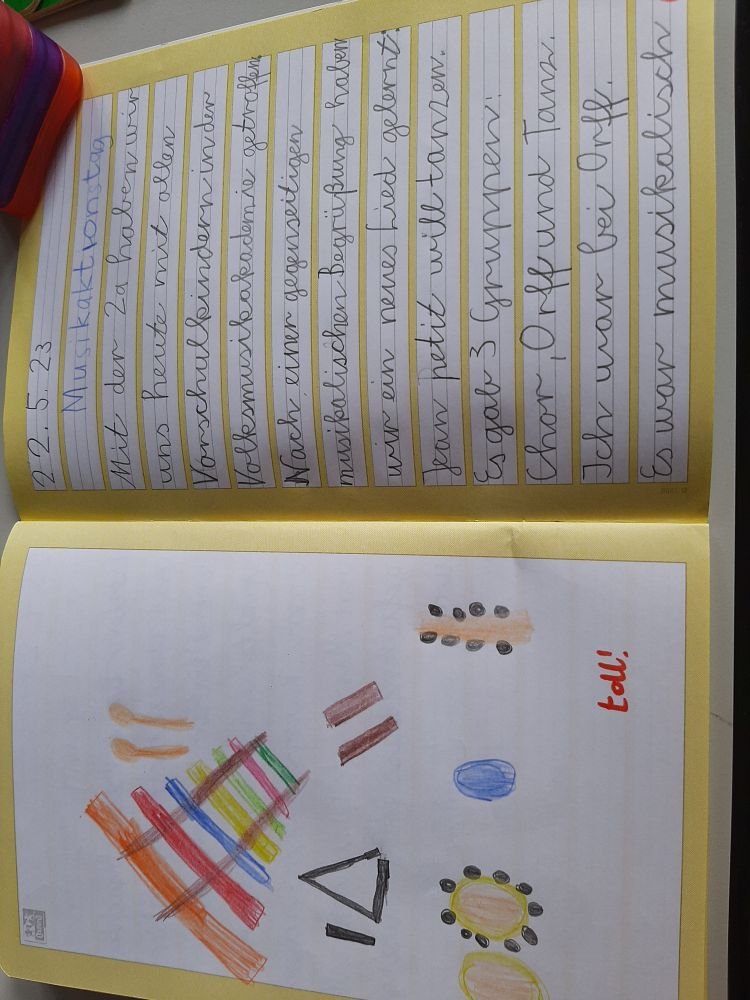 22.5.23
Musikaktionstag
Mit der 2a haben wir
uns heute mit allen
Vorschulkindern in der
Volksmusikakademie getroffen.
Nach einer gegenseitigen
musikalischen Begrüßung haben
wir ein neues Lied gelernt:
Jean petit will tanzen.
Es gab 3 Gruppen:
Chor, Orff und Tanz.
Ich war bei Orff.
Es war musikalisch
toll!